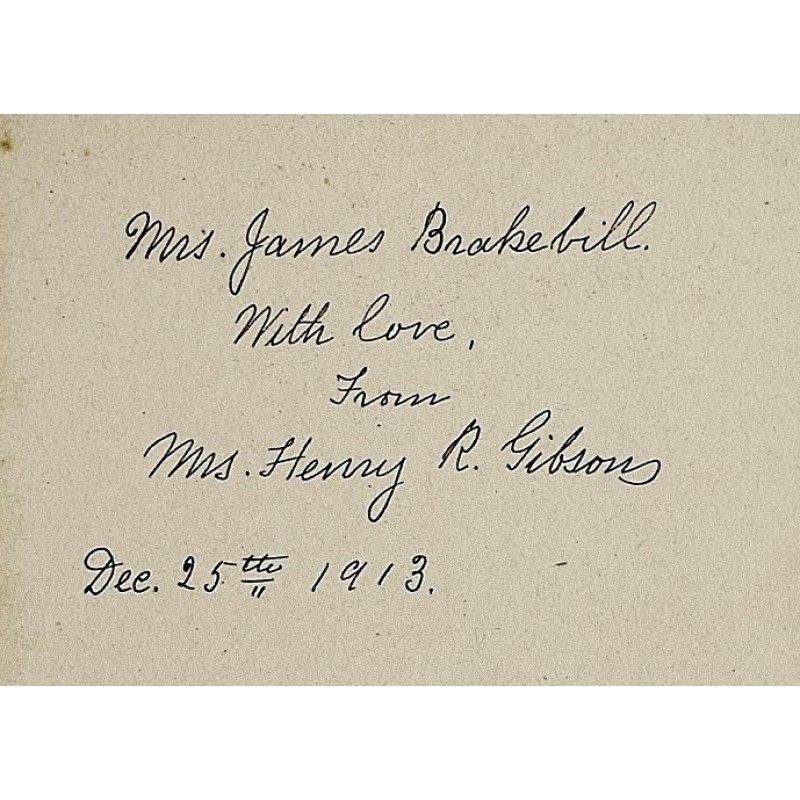 Mrs. James Brakebill.
With love,
From
Mrs. Henry R. Gibson
Dec. 25th 1913.